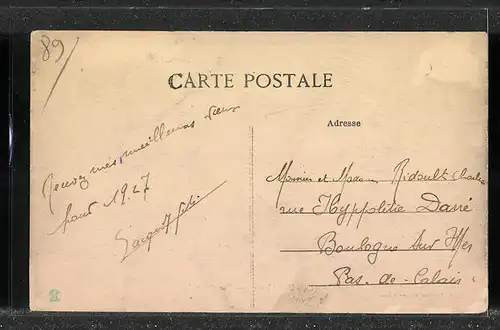 89
CARTE POSTALE
Adresse
Recevez mes meilleurs vœux
pour 1927
Monsieur et Madame Ridoult Charles
rue Hyppolite Darré
Boulogne sur Mer
Pas-de-Calais